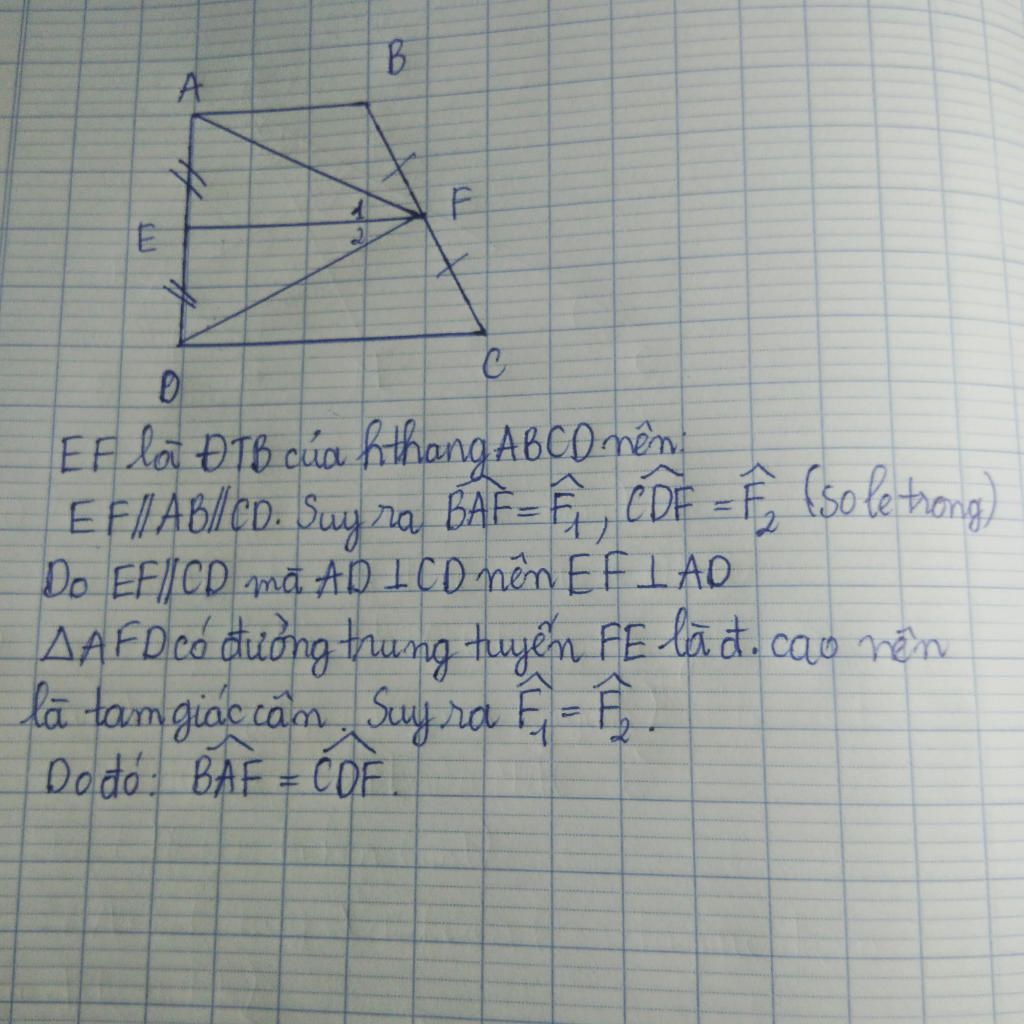 A
B
1
F
E
2
D
C
EF là ĐTB của hthang ABCD nên:
EF//AB//CD. Suy ra \widehat{BAF} = \widehat{F}₁, \widehat{CDF} = \widehat{F}₂ (so le trong)
Do EF//CD mà AD ⊥ CD nên EF ⊥ AD
△AFD có đường trung tuyến FE là đ. cao nên
là tam giác cân. Suy ra \widehat{F}₁ = \widehat{F}₂.
Do đó: \widehat{BAF} = \widehat{CDF}.